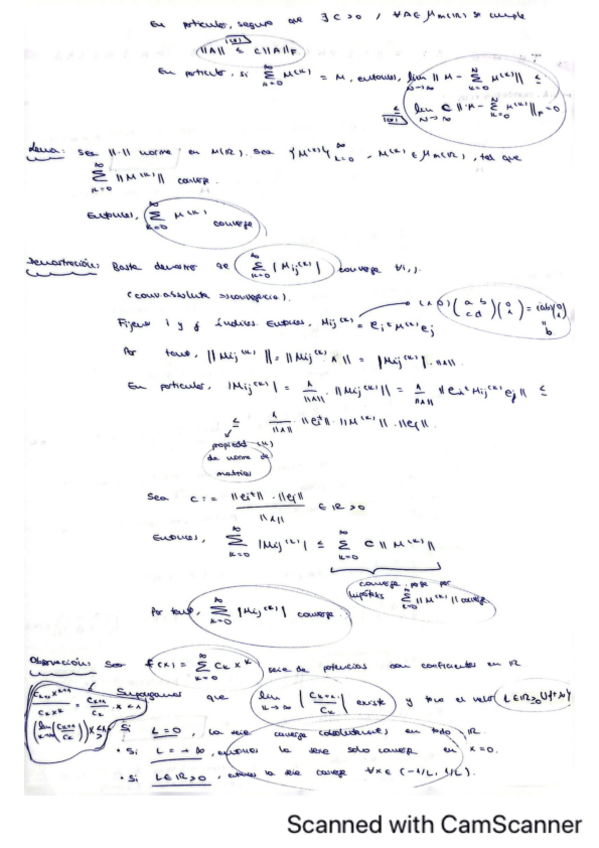 En particular, seguro que ∃ C>0 / ∀A∈ M_n(ℝ) se cumple
(*)
||A|| ≤ C||A||_F
En particular, si Σ_{k=0}^∞ M^(k) = M, entonces, lim_{N→∞} || M - Σ_{k=0}^N M^(k) || ≤
≤ lim_{N→∞} C || M - Σ_{k=0}^N M^(k) ||_F = 0
(*)
Lema: Sea ||·|| norma en M(ℝ). Sea {M^(k)}_{k=0}^∞, M^(k) ∈ M_n(ℝ), tal que
Σ_{k=0}^∞ ||M^(k)|| converge.
Entonces, Σ_{k=0}^∞ M^(k) converge
Demostración: Basta demostrar que Σ_{k=0}^∞ |M_ij^(k)| converge ∀i,j.
(conv absoluta ⇒ convergencia).
(1 0) (a b / c d) (0 / 1) = (a b)(0 / 1) = b
Fijemos i y j índices. Entonces, M_ij^(k) = e_i^t M^(k) e_j
Por tanto, ||M_ij^(k)|| = ||M_ij^(k) · 1|| = |M_ij^(k)| · ||1||.
En particular, |M_ij^(k)| = 1/||1|| · ||M_ij^(k)|| = 1/||1|| · ||e_i^t M_ij^(k) e_j|| ≤
≤ 1/||1|| · ||e_i^t|| · ||M^(k)|| · ||e_j||.
propiedad
de norma de
matrices
Sea C := ||e_i^t|| · ||e_j|| / ||1|| ∈ ℝ>0
Entonces, Σ_{k=0}^∞ |M_ij^(k)| ≤ Σ_{k=0}^∞ C ||M^(k)||
converge, pues por
hipótesis Σ_{k=0}^∞ ||M^(k)|| converge
Por tanto, Σ_{k=0}^∞ |M_ij^(k)| converge.
Observación: Sea f(x) = Σ_{k=0}^∞ C_k x^k serie de potencias con coeficientes en ℝ
Supongamos que lim_{k→∞} |C_{k+1}/C_k| existe y toma el valor L∈ℝ≥0 ∪{+∞}
C_{k+1} x^{k+1} / C_k x^k = C_{k+1}/C_k · x < 1
(lim_{k→∞} (C_{k+1}/C_k)) x < 1
Si L=0, la serie converge absolutamente, en todo ℝ.
• Si L=+∞, entonces la serie solo converge en x=0.
• Si L∈ℝ>0, entonces la serie converge ∀x∈ (-1/L, 1/L).
Scanned with CamScanner